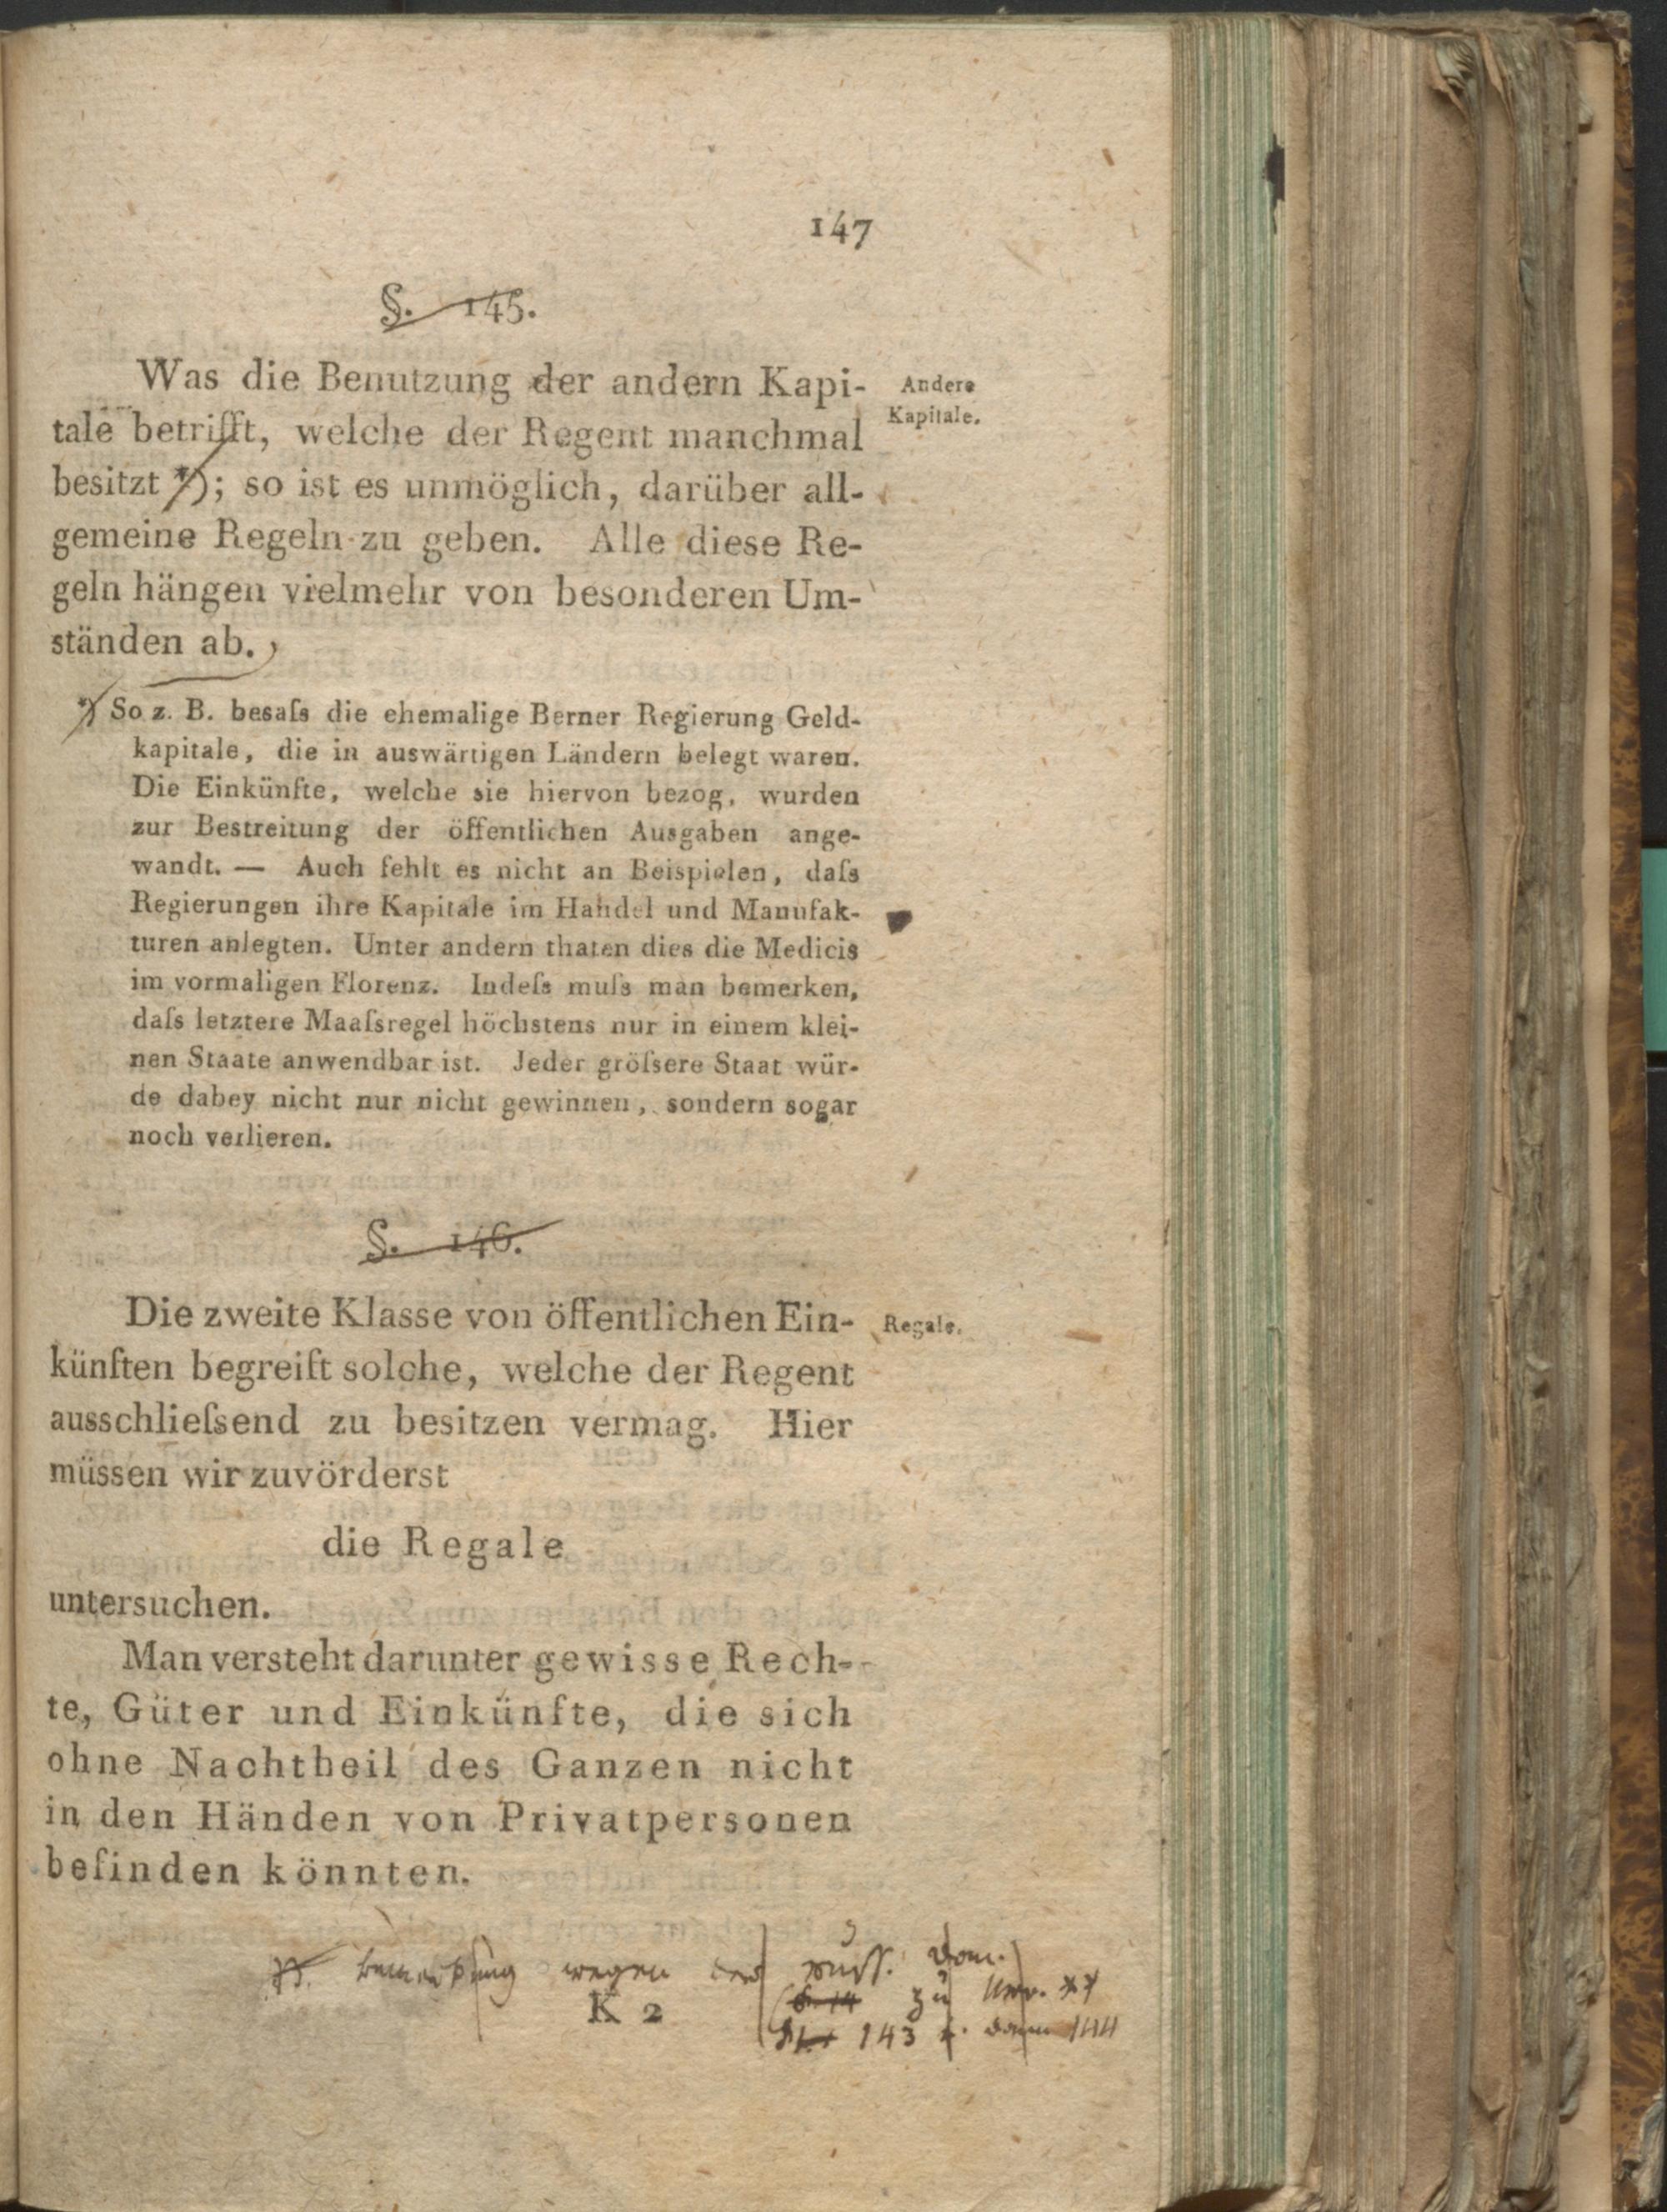 147
§. 145.
Was die Benutzung der andern Kapi-
Andere
Kapitale.
tale betrifft, welche der Regent manchmal
besitzt *); so ist es unmöglich, darüber all-
gemeine Regeln zu geben. Alle diese Re-
geln hängen vielmehr von besonderen Um-
ständen ab.
*) So z. B. besaſs die ehemalige Berner Regierung Geld-
kapitale, die in auswärtigen Ländern belegt waren.
Die Einkünfte, welche sie hiervon bezog, wurden
zur Bestreitung der öffentlichen Ausgaben ange-
wandt. — Auch fehlt es nicht an Beispielen, daſs
Regierungen ihre Kapitale im Handel und Manufak-
turen anlegten. Unter andern thaten dies die Medicis
im vormaligen Florenz. Indeſs muſs man bemerken,
daſs letztere Maaſsregel höchstens nur in einem klei-
nen Staate anwendbar ist. Jeder gröſsere Staat wür-
de dabey nicht nur nicht gewinnen, sondern sogar
noch verlieren.
§. 146.
Die zweite Klasse von öffentlichen Ein-
Regale.
künften begreift solche, welche der Regent
ausschlieſsend zu besitzen vermag. Hier
müssen wir zuvörderst
die Regale
untersuchen.
Man versteht darunter gewisse Rech-
te, Güter und Einkünfte, die sich
ohne Nachtheil des Ganzen nicht
in den Händen von Privatpersonen
befinden könnten.
Bemerkung wegen der russ. Dom.
K 2
zu
143 144